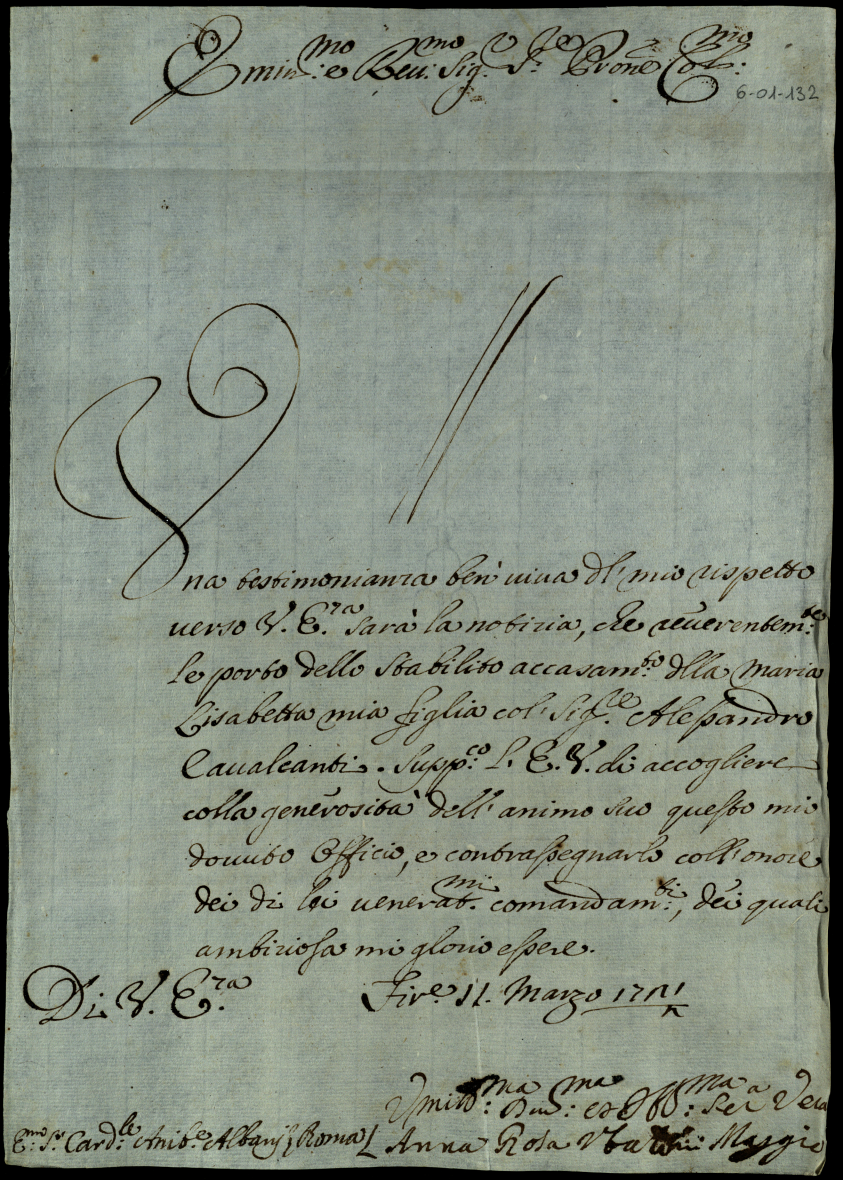 Emin:mo e Rev:mo Sig.r S.r e Prone Col:mo
6-01-132
Una testimonianza ben viva dl' mio rispetto
verso V. E.za sarà la notizia, che reverentem:te
le porto dello stabilito accasam:to dlla Maria
Lisabetta mia figlia col' Sig.re Alessandro
Cavalcanti. Supp:co l' E. V. di accogliere
colla generosità dell' animo suo questo mio
dovuto Officio, e contrassegnarlo coll' onore
dei di lei venerat.mi comandam:ti, dei quali
ambiziosa mi glorio essere.
Di V. E.za Fir.e 11. Marzo
Umil:ma Dev:ma ed Obb:ma Ser:a Vera
E.mo S.r Card:le Anib.e Albani / Roma / Anna Rosa